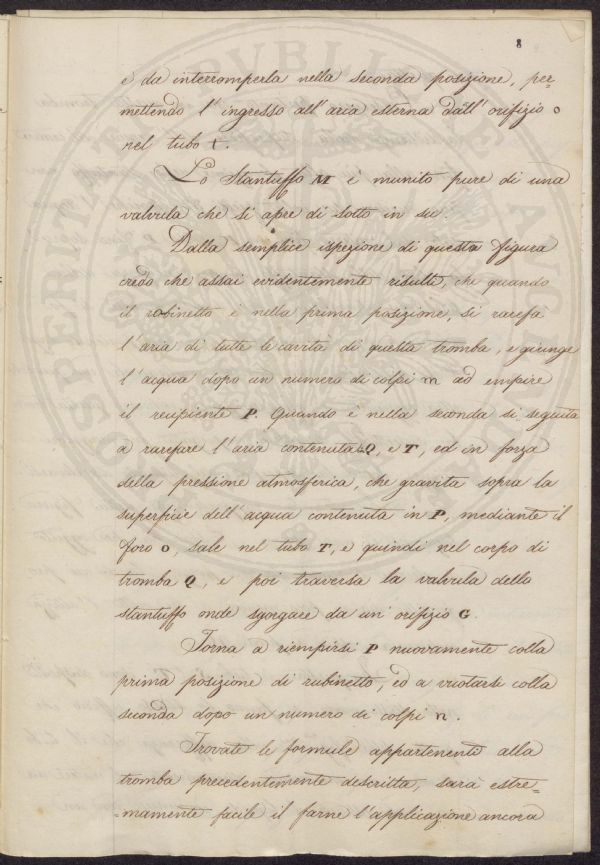 8
e da interromperla nella seconda posizione, per=
mettendo l'ingresso all'aria esterna dall'orifizio o
nel tubo t.
Lo Stantuffo M è munito pure di una
valvula che si apre di sotto in su.
Dalla semplice ispezione di questa figura
credo che assai evidentemente risulti, che quando
il robinetto è nella prima posizione, si rarefà
l'aria di tutte le cavità di questa tromba, e giunge
l'acqua dopo un numero di colpi m ad empire
il recipiente P. Quando è nella seconda si seguita
a rarefare l'aria contenuta Q, e T, ed in forza
della pressione atmosferica, che gravita sopra la
superficie dell'acqua contenuta in P, mediante il
foro o, sale nel tubo T, e quindi nel corpo di
tromba Q, e poi traversa la valvula dello
stantuffo onde sgorgare da un'orifizio G.
Torna a riempirsi P nuovamente colla
prima posizione di rubinetto, ed a vuotarsi colla
seconda dopo un numero di colpi n.
Trovate le formule appartenenti alla
tromba precedentemente descritta, sarà estre=
=mamente facile il farne l'applicazione ancora